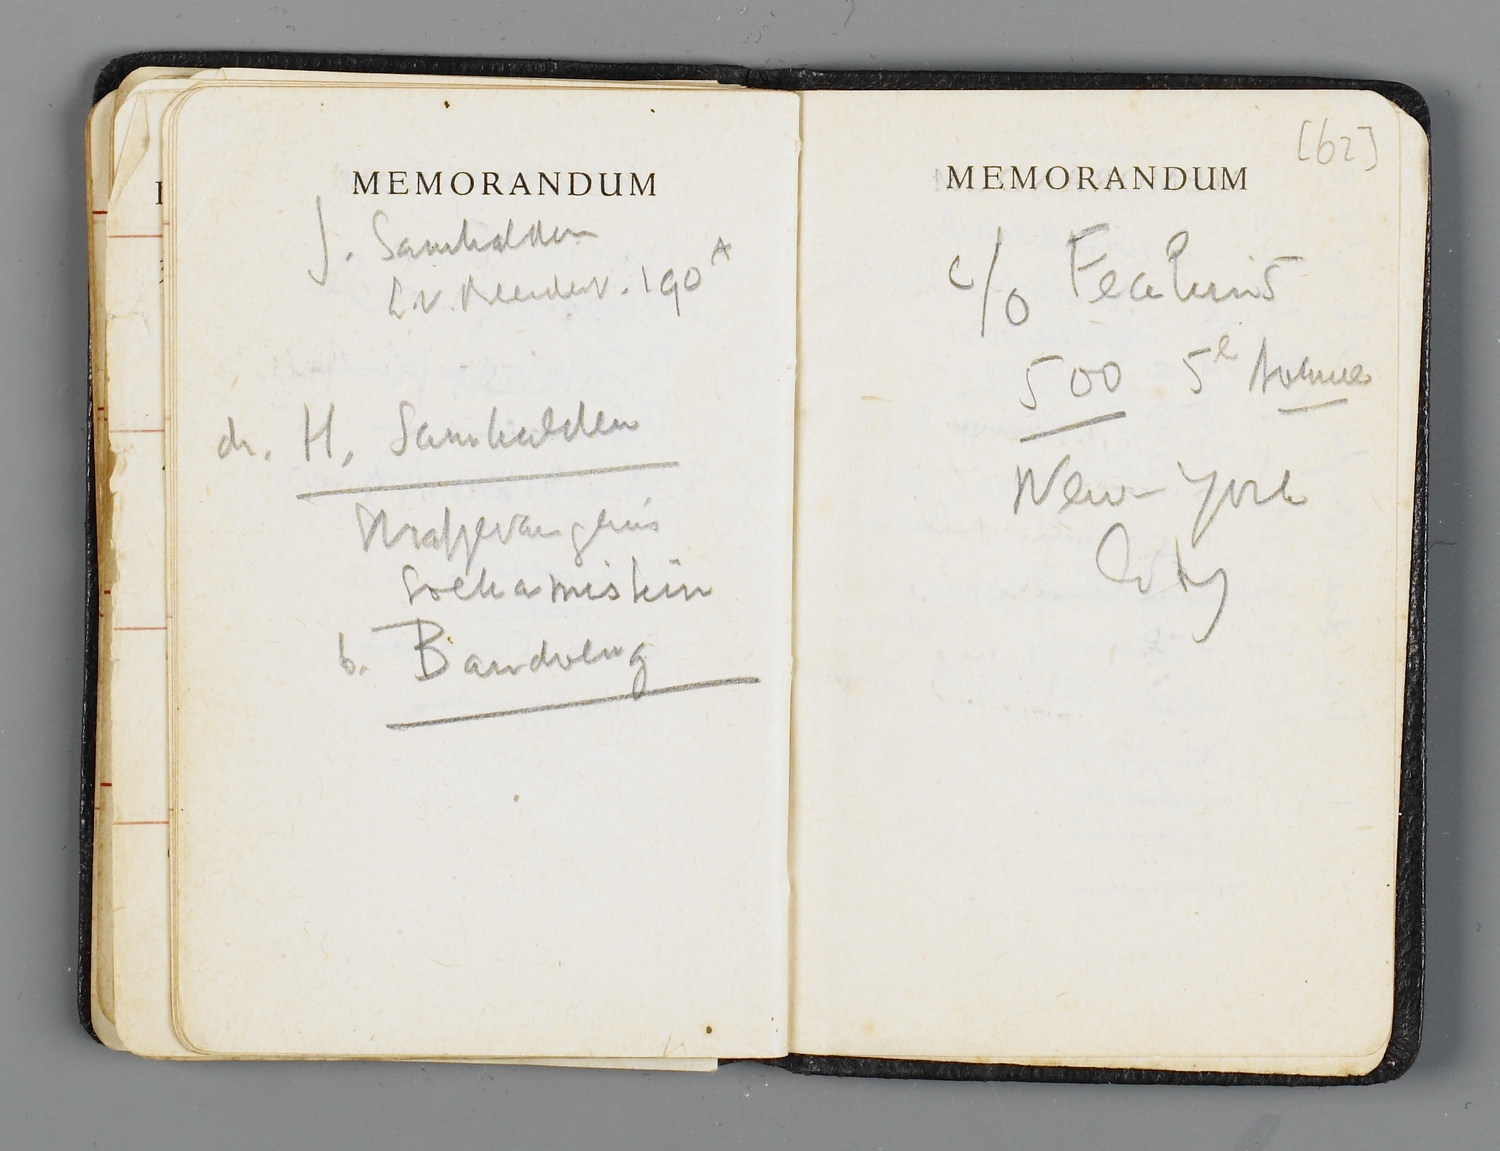 MEMORANDUM
J. Samkalden
L.v. Meerderv. 190 A
dr. H. Samkalden
Strafgevangenis
Soekamiskin
b. Bandoeng
MEMORANDUM
[62]
c/o Features
500 5e Avenue
New-York
City